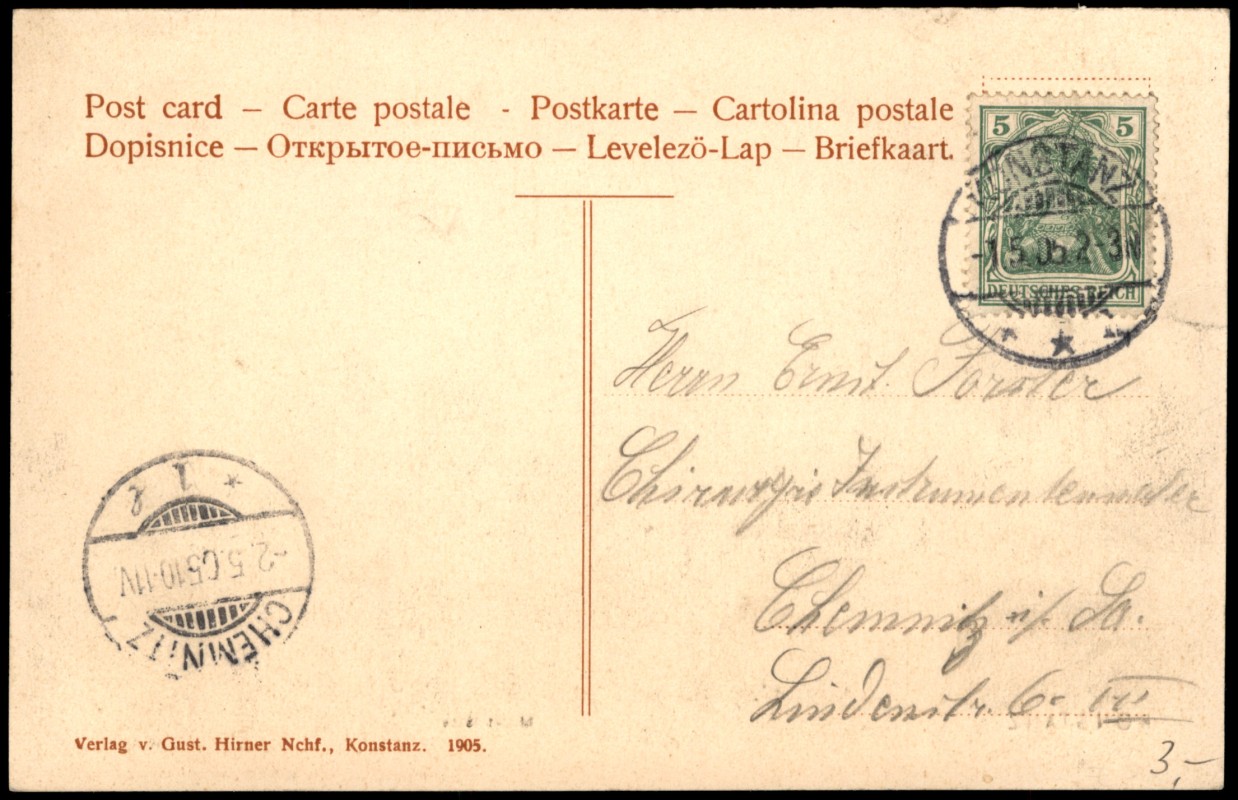 Post card – Carte postale - Postkarte – Cartolina postale
Dopisnice – Открытое-письмо – Levelezö-Lap – Briefkaart.
5 5
KONSTANZ
-1.5.05.2-3N
DEUTSCHES REICH
Herrn Ernst. Forster
Chirurgie Instrumentenmacher
Chemnitz i/. Sa.
Lindenstr. 6. III
* 1 g
-2.5.05 10-11V
CHEMNITZ
Verlag v. Gust. Hirner Nchf., Konstanz. 1905.
3,-